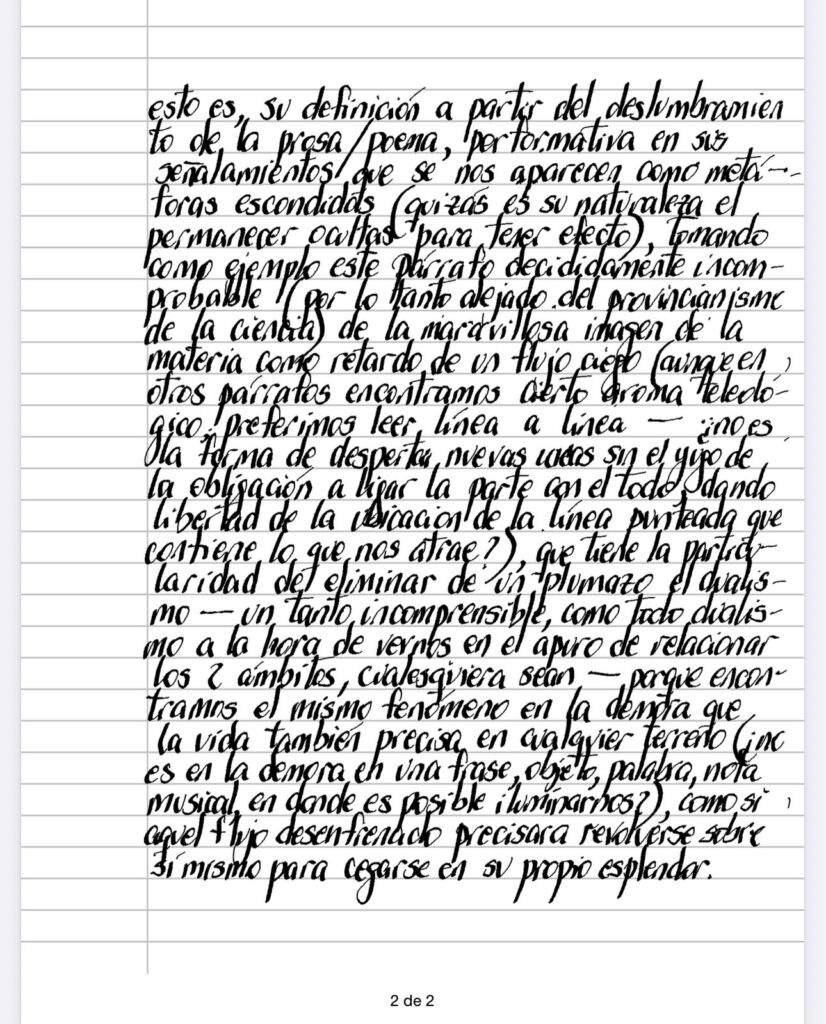 esto es, su definición a partir del deslumbramien
to de la prosa/poema, performativa en sus
señalamientos que se nos aparecen como metá-
foras escondidas (quizás es su naturaleza el
permanecer ocultas para tener efecto), tomando
como ejemplo este párrafo decididamente incom-
probable (por lo tanto alejado del provincianismo
de la ciencia) de la maravillosa imagen de la
materia como retardo de un flujo ciego (aunque en
otros párrafos encontramos cierto aroma teleoló-
gico, preferimos leer línea a línea — ¿no es
la forma de despertar nuevas ideas sin el yugo de
la obligación a ligar la parte con el todo, dando
libertad de la ubicación de la línea punteada que
contiene lo que nos atrae?), que tiene la particu-
laridad del eliminar de un plumazo el dualis-
mo — un tanto incomprensible, como todo dualis-
mo a la hora de vernos en el apuro de relacionar
los 2 ámbitos, cualesquiera sean — porque encon-
tramos el mismo fenómeno en la demora que
la vida también precisa en cualquier terreno (¿no
es en la demora en una frase, objeto, palabra, nota
musical, en donde es posible iluminarnos?), como si
aquel flujo desenfrenado precisara revolverse sobre
sí mismo para cegarse en su propio esplendor.
2 de 2